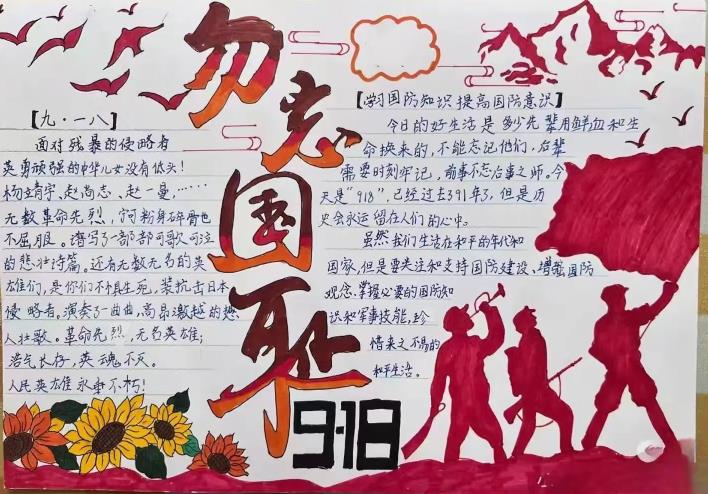 勿忘国耻
9·18
【九·一八】
面对残暴的侵略者
英勇顽强的中华儿女没有低头!
杨靖宇、赵尚志、赵一曼,……
无数革命先烈,宁可粉身碎骨也
不屈服。谱写了一部部可歌可泣
的悲壮诗篇。还有无数无名的英
雄们,是你们不惧生死,英抗击日本
侵略者,演奏了一曲曲,高昂激越的
人壮歌。革命先烈,无名英雄;
浩气长存,英魂不灭。
人民英雄永垂不朽!
【学习国防知识 提高国防意识】
今日的好生活是多少先辈用鲜血和生
命换来的,不能忘记他们,后辈
需要时刻牢记,前事不忘后事之师,今
天是"918",已经过去391年了,但是历
史会永远留在人们的心中。
虽然我们生活在和平的年代和
国家,但是要关注和支持国防建设、增强国防
观念、掌握必要的国防知
识和军事技能,珍
惜来之不易的
和平生活。